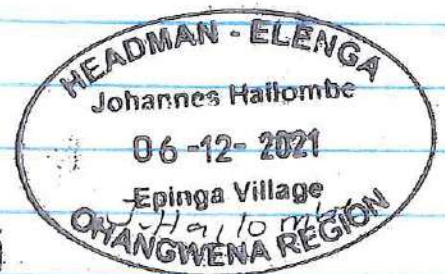 HEADMAN - ELENGA
Johannes Hailombe
06-12-2021
Epinga Village
J.Hailombe
OHANGWENA REGION